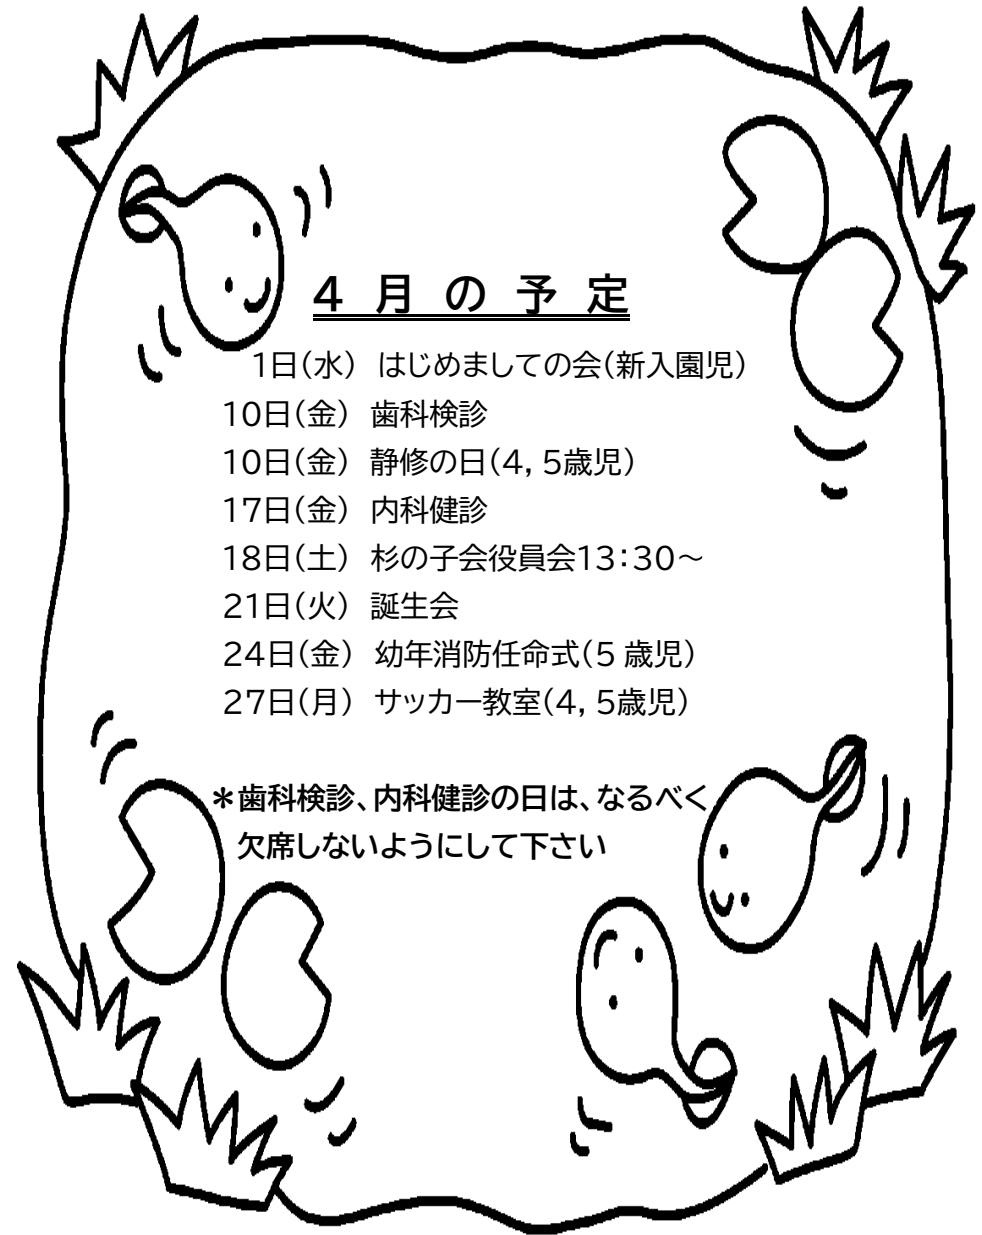 4月の予定
1日(水) はじめましての会(新入園児)
10日(金) 歯科検診
10日(金) 静修の日(4,5歳児)
17日(金) 内科健診
18日(土) 杉の子会役員会13:30～
21日(火) 誕生会
24日(金) 幼年消防任命式(5歳児)
27日(月) サッカー教室(4,5歳児)
＊歯科検診、内科健診の日は、なるべく
欠席しないようにして下さい